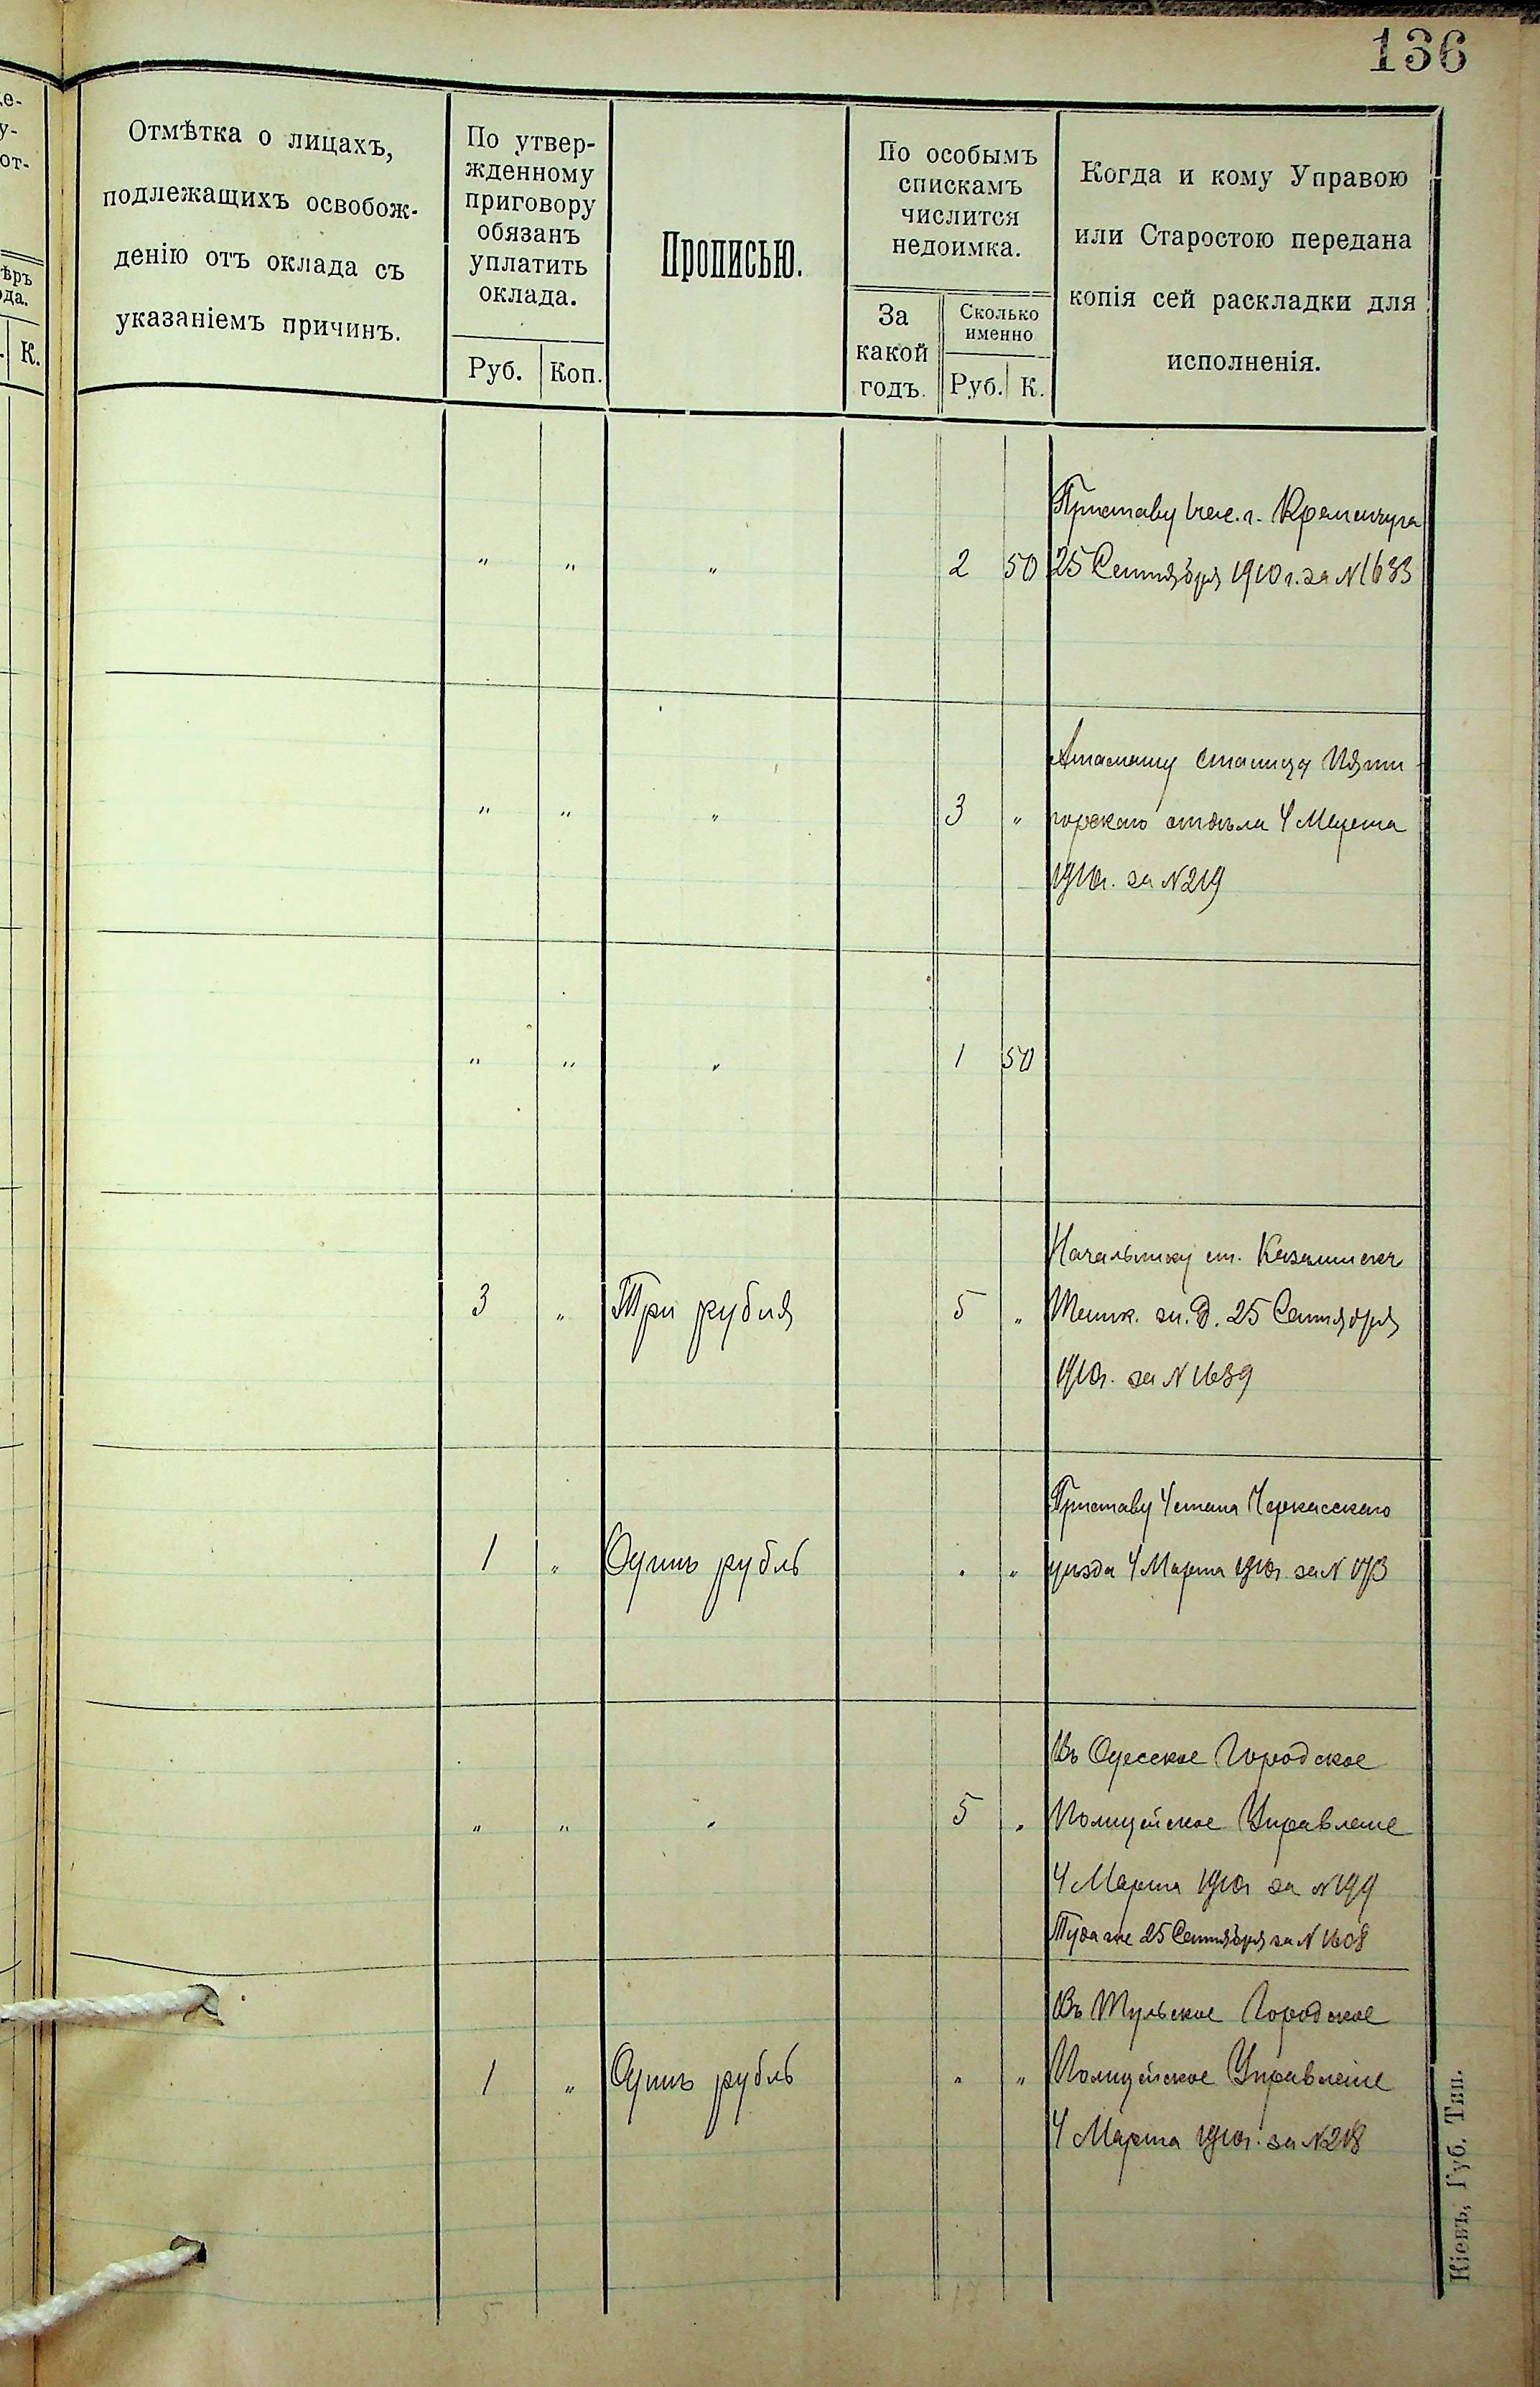 136
Отмѣтка о лицахъ,
подлежащихъ освобож-
денію отъ оклада съ
указаніемъ причинъ.
По утвер-
жденному
приговору
обязанъ
уплатить
оклада.
Руб. Коп.
Прописью.
По особымъ
спискамъ
числится
недоимка.
За
какой
годъ.
Сколько
именно
Руб. К.
Когда и кому Управою
или Старостою передана
копія сей раскладки для
исполненія.
Приставу г. Кременчуга
" " " 2 50 25 Сентября 1910 г. за N 1633
Атаману станицы Пяти-
" " " 3 " горскаго отдѣла 4 Марта
1910 г. за N 219
" " " 1 50
Начальнику ст.
3 " Три рубля 5 " Ташк. ж. д. 25 Сентября
1910 г. за N 1639
Приставу 4 стана Черкасскаго
1 " Одинъ рубль " " уѣзда 4 Марта 1910 г. за N 173
Въ Одесское Городское
" " " 5 " Полицейское Управленіе
4 Марта 1910 г за N 199
Туда же 25 Сентября за N 1608
Въ Тульское Городское
1 " Одинъ рубль " " Полицейское Управленіе
4 Марта 1910 г. за N 218
5 17
Кіевъ, Губ. Тип.